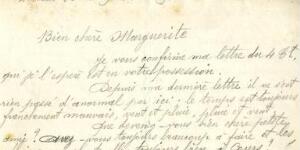 Bien chère Marguerite
Je vous confirme ma lettre du 4 Et,
qui je l'espère est en votre possession.
Depuis ma dernière lettre il ne s'est
rien passé d'anormal par ici; le temps est toujours
franchement mauvais, vent et pluie, pluie et vent
Que devenez-vous bien chère petite
amie? avez-vous toujours beaucoup à faire et les
toujours bien à Cours?